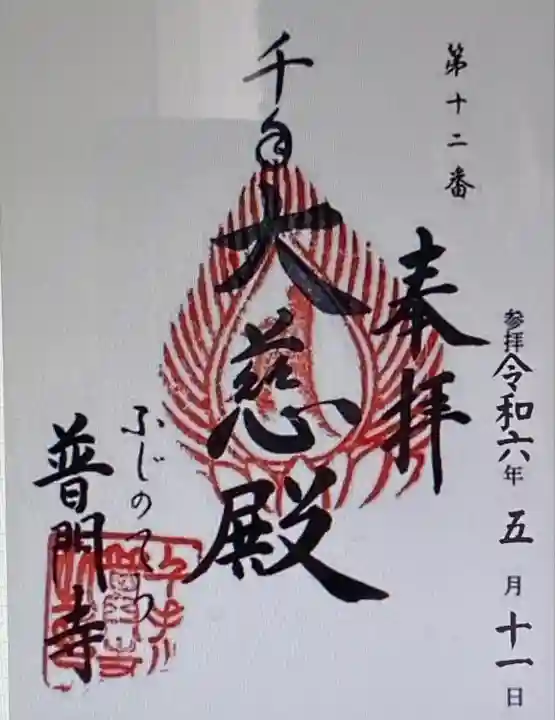 参拝令和六年五月十一日
第十二番
奉拝
千手大慈殿
ふじのてら
普門寺